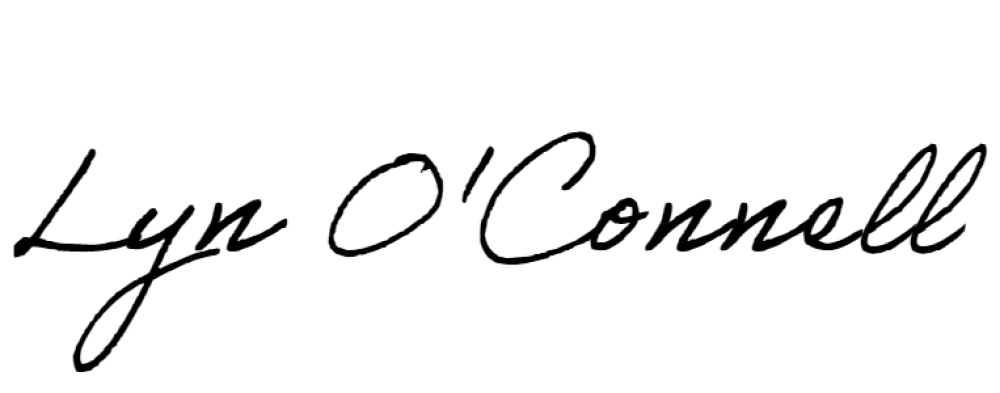 Lyn O'Connell